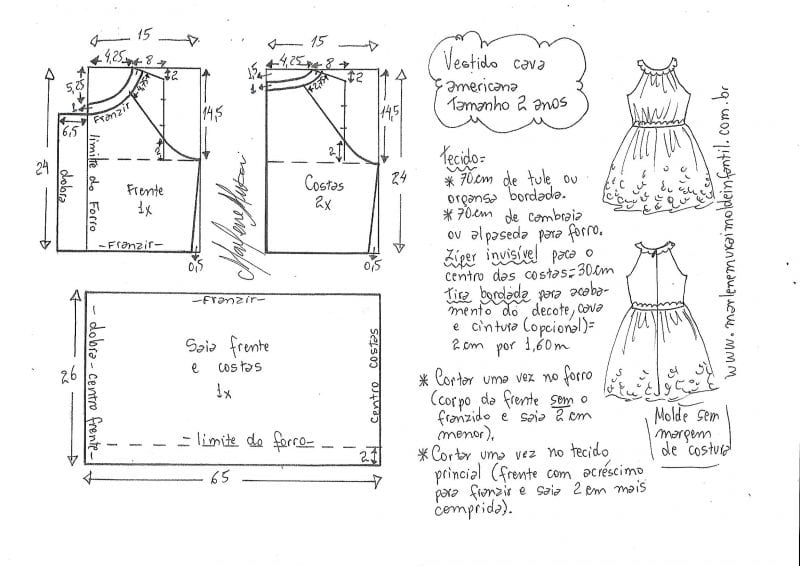 Vestido cava
americana
Tamanho 2 anos
Tecido=
* 70cm de tule ou
organsa bordada.
* 70cm de cambraia
ou alpaseda para forro.
Ziper invisível para o
centro das costas=30cm
Tira bordada para acaba-
mento do decote, cava
e cintura (opcional)=
2cm por 1,60m
* Cortar uma vez no forro
(corpo da frente sem o
franzido e saia 2cm
menor).
* Cortar uma vez no tecido
princial (frente com acréscimo
para franzir e saia 2cm mais
comprida).
Molde sem
margem
de costura
www.marlenemukaimoldeinfantil.com.br
15
4,25
8
2
5,25
1
6,5
Franzir
14,5
24
2
dobra
limite do Forro
Frente
1x
-Franzir-
0,5
Marlene Mukai
15
4,25
8
2
1,5
1
14,5
24
2
Costas
2x
0,5
-Franzir-
Saia frente
e costas
1x
-dobra-centro frente-
centro costas
=limite do forro-
26
2
65